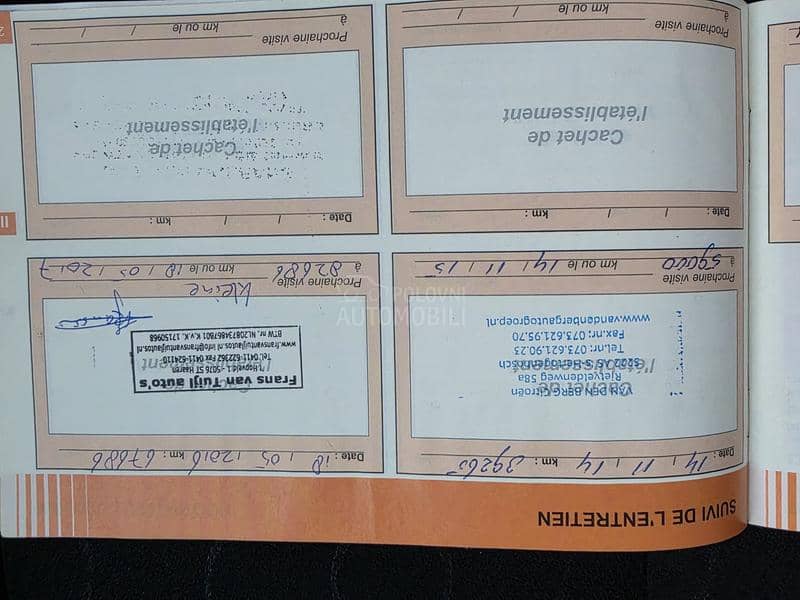 SUIVI DE L'ENTRETIEN
Date : 14 / 11 / 14 km : 39265
Cachet de
l'établissement
VAN DEN BERG Citroën
Rietveldenweg 58a
5222 AS 's-Hertogenbosch
Tel.nr: 073.621.90.23
Fax.nr: 073.621.95.70
www.vandenbergautogroep.nl
Prochaine visite
à 59000 km ou le 14 / 11 / 15
Date : 18 / 05 / 2016 km : 67686
Cachet de
l'établissement
Frans van Tuijl auto's
www.fransvantuijlautos.nl info@fransvantuijlautos.nl
BTW. nr. NL208734867B01 K.v.K. 17150968
Kleine
Prochaine visite
à 82686 km ou le 18 / 05 / 2017
Date : / / km :
Cachet de
l'établissement
Prochaine visite
à km ou le / /
Date : / / km :
Cachet de
l'établissement
Prochaine visite
à km ou le / /
POLOVNI
AUTOMOBILI